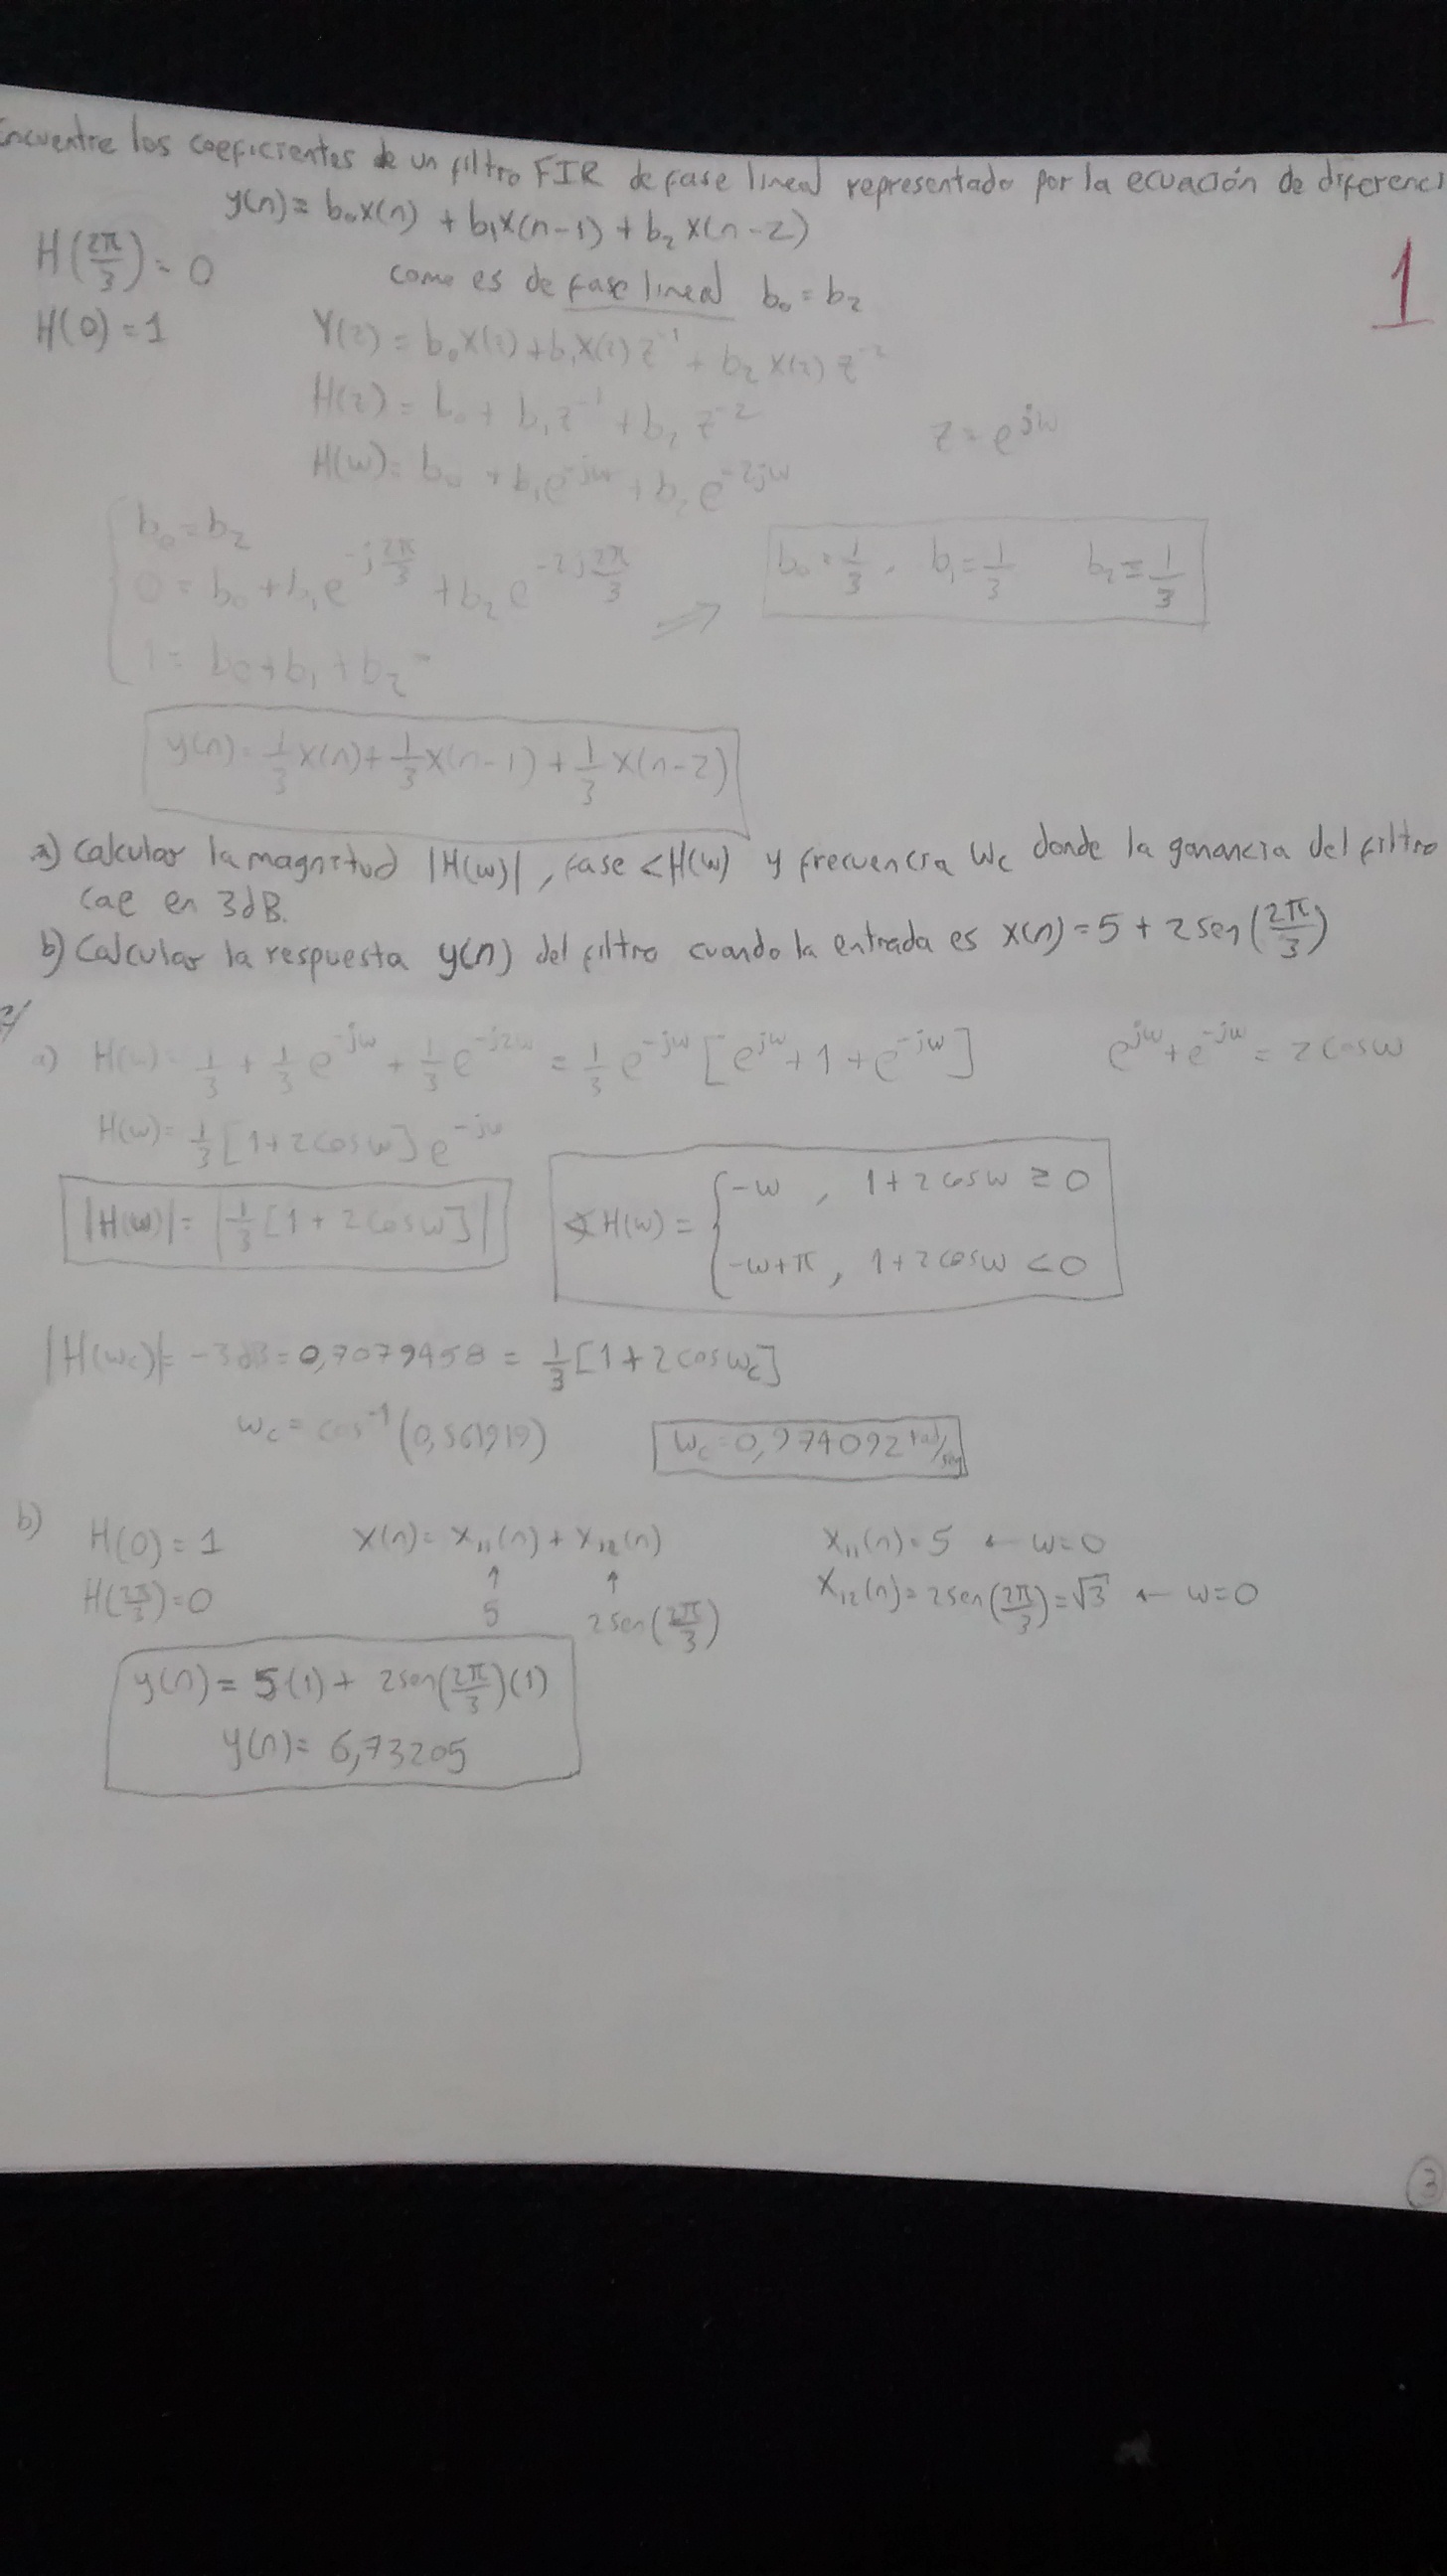 Encuentre los coeficientes de un filtro FIR de fase lineal representado por la ecuación de diferenci
y(n) = b₀x(n) + b₁x(n-1) + b₂x(n-2)
H(2π/3) = 0
como es de fase lineal b₀ = b₂
1
H(0) = 1
Y(z) = b₀X(z) + b₁X(z)z⁻¹ + b₂X(z)z⁻²
H(z) = b₀ + b₁z⁻¹ + b₂z⁻²
z = e^jw
H(w) = b₀ + b₁e^-jw + b₂e^-2jw
b₀ = b₂
0 = b₀ + b₁e^-j2π/3 + b₂e^-2j2π/3
⇒ b₀ = 1/3, b₁ = 1/3 b₂ = 1/3
1 = b₀ + b₁ + b₂
y(n) = 1/3 x(n) + 1/3 x(n-1) + 1/3 x(n-2)
a) Calcular la magnitud |H(w)|, fase <H(w) y frecuencia Wc donde la ganancia del filtro
cae en 3dB.
b) Calcular la respuesta y(n) del filtro cuando la entrada es x(n) = 5 + 2sen(2π/3)
a) H(w) = 1/3 + 1/3 e^-jw + 1/3 e^-j2w = 1/3 e^-jw [e^jw + 1 + e^-jw] e^jw + e^-jw = 2cosw
H(w) = 1/3 [1 + 2cosw] e^-jw
|H(w)| = |1/3 [1 + 2cosw]|
∢H(w) = { -w , 1 + 2cosw ≥ 0
-w+π , 1 + 2cosw < 0
|H(wc)| = -3dB = 0,7079458 = 1/3 [1 + 2coswc]
wc = cos⁻¹(0,561919) wc = 0,974092 rad/seg
b) H(0) = 1 x(n) = x₁₁(n) + x₁₂(n) x₁₁(n) = 5 ← w=0
H(2π/3) = 0 ↑ 5 ↑ 2sen(2π/3) x₁₂(n) = 2sen(2π/3) = √3 ← w=0
y(n) = 5(1) + 2sen(2π/3)(1)
y(n) = 6,73205
3